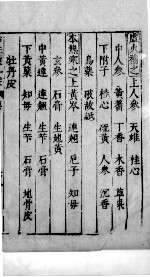 虛火補之上人參 天雄 桂心
中人參 黃蓍 丁香 木香 草果
下附子 桂心 硫黃 人參 沉香
烏藥 破故紙
本熱寒之上黃芩 連翹 梔子 知母
玄參 石膏 生地黃
中黃連 連翹 生苄 石膏
下黃蘗 知母 生苄 石膏 地骨皮
牡丹皮